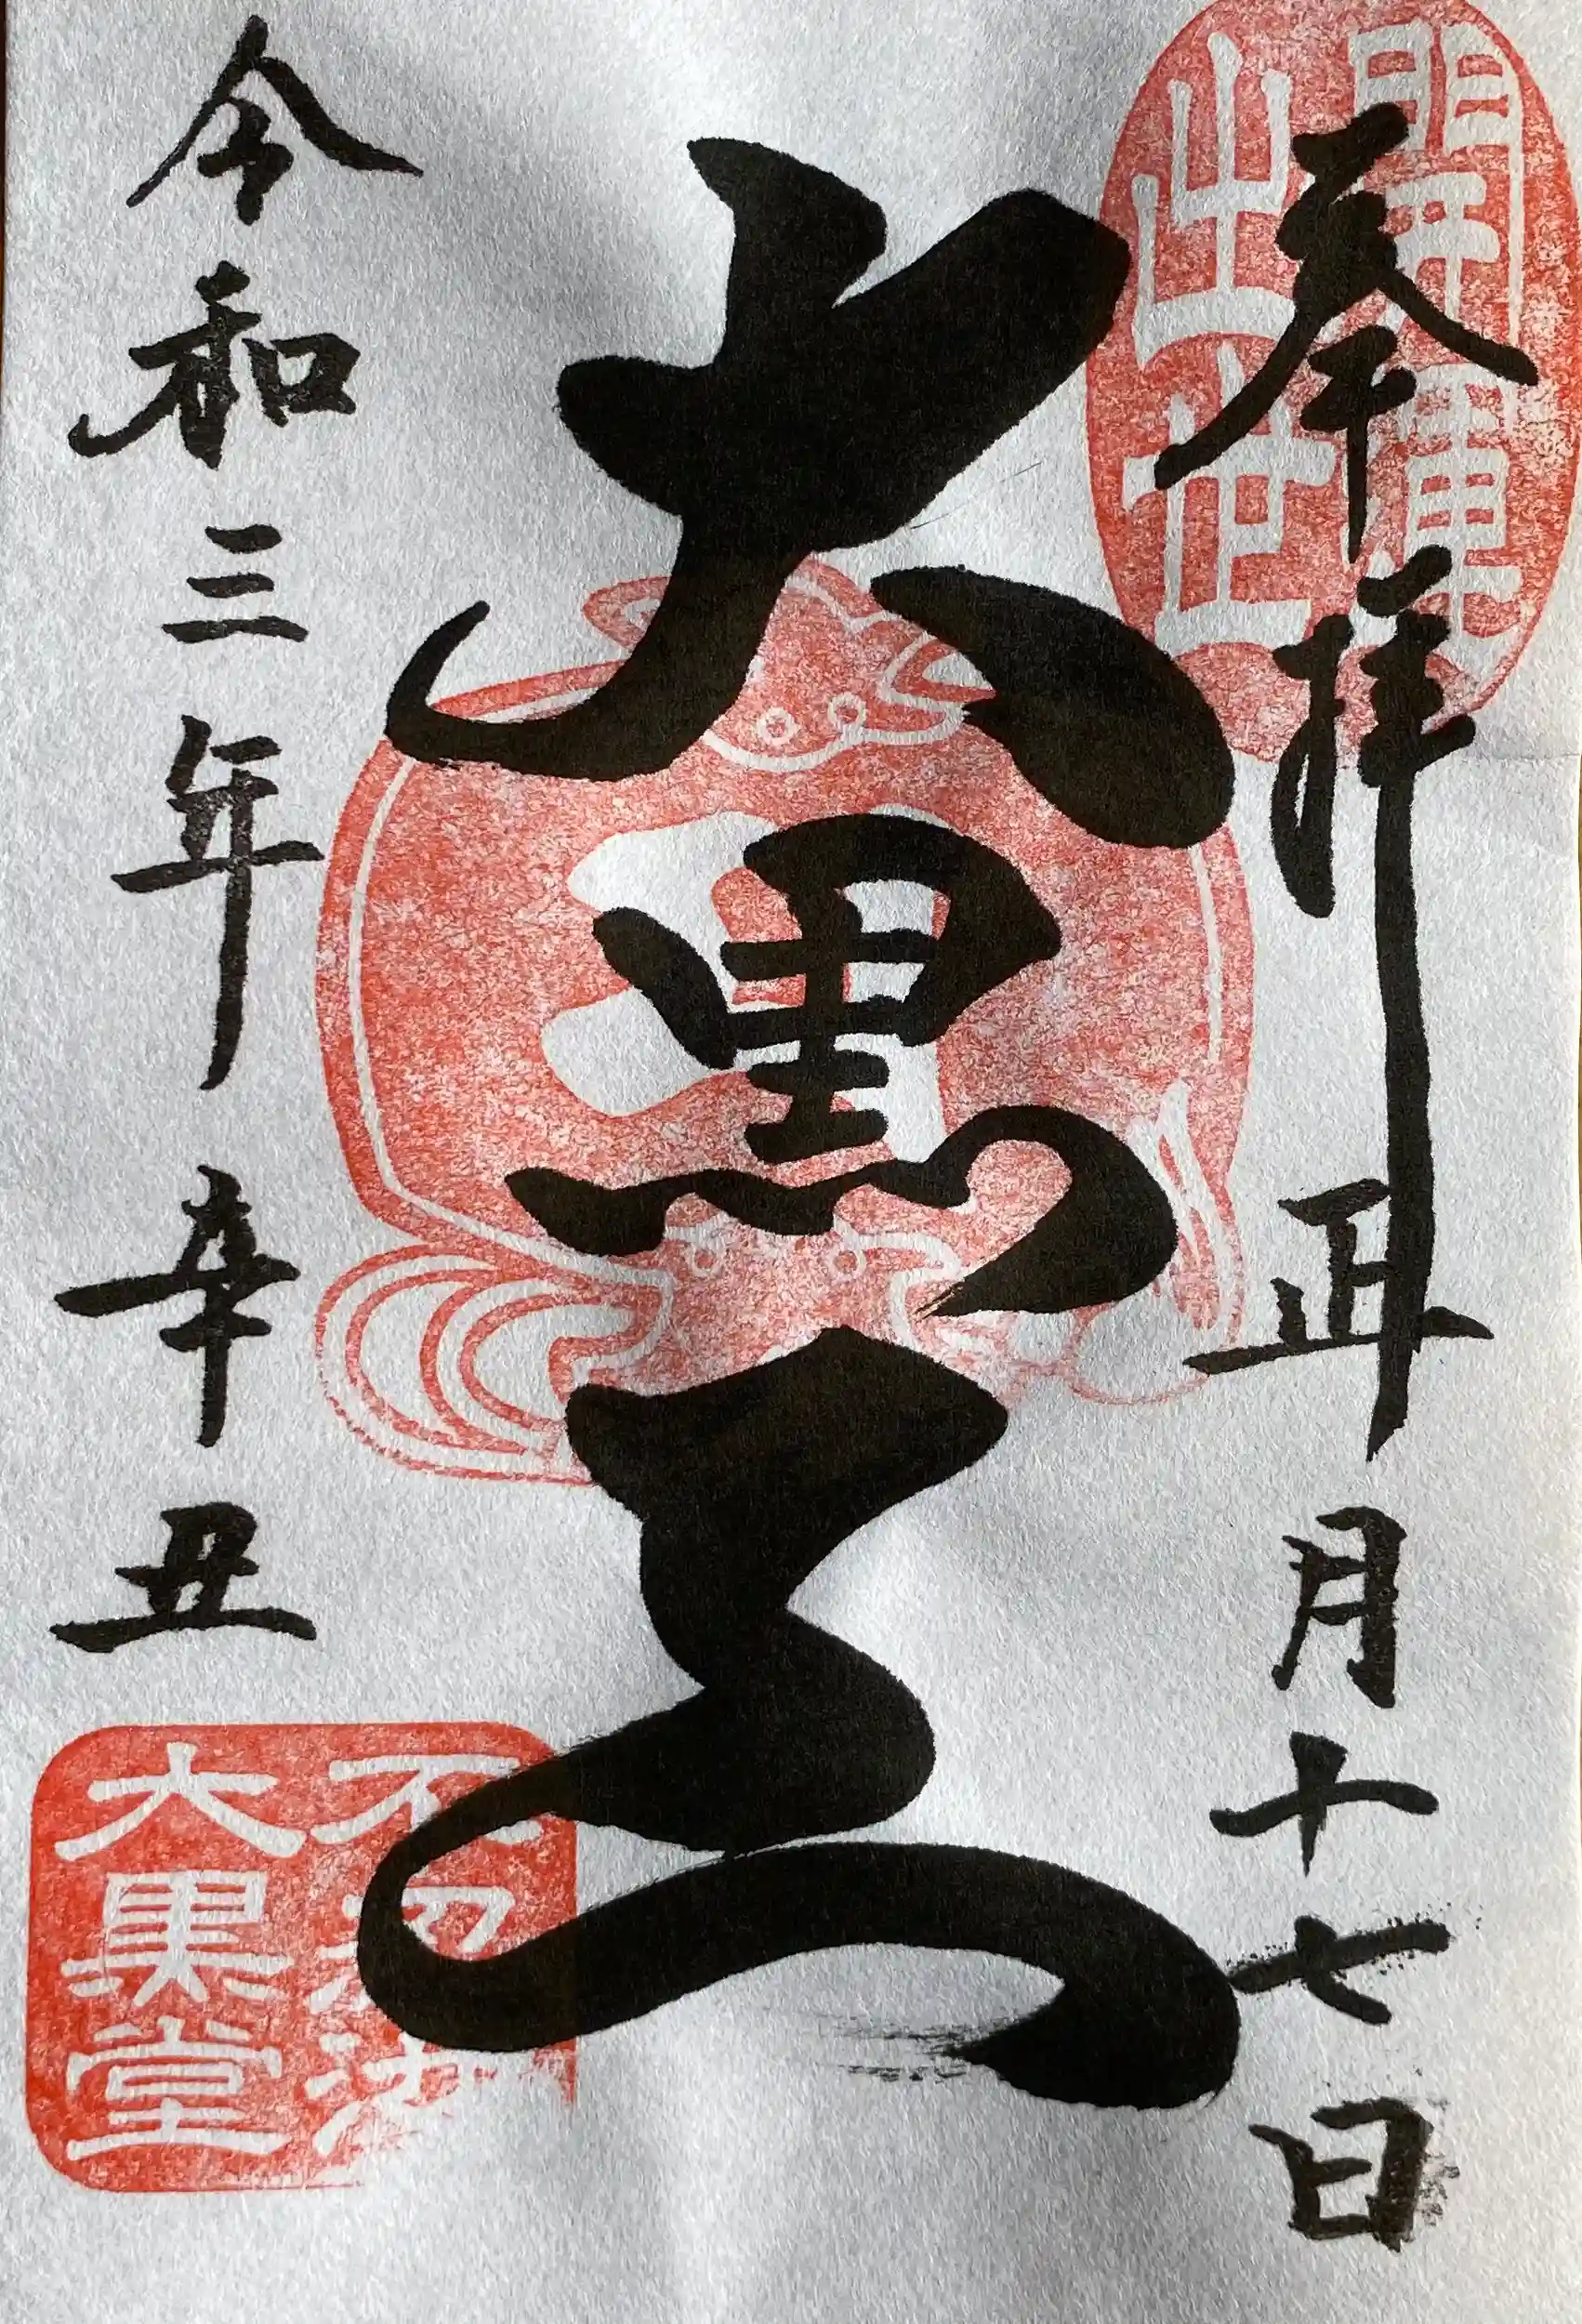 開運
出世
奉拝
正月十七日
大黒天
令和三年
辛丑
不忍池
大黒堂